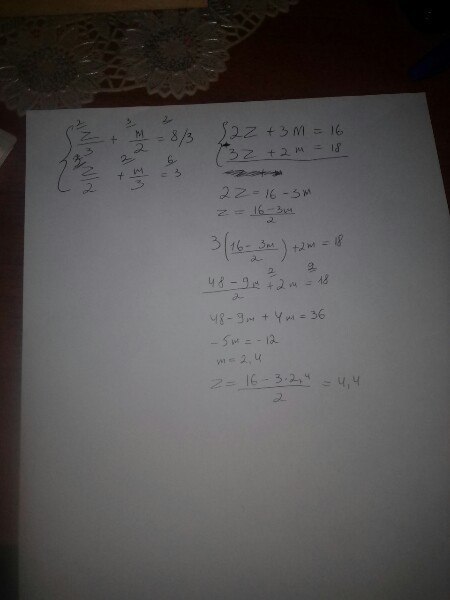 2 3 2
{ z/3 + m/2 = 8/3
3 2 6
z/2 + m/3 = 3
{ 2z + 3m = 16
3z + 2m = 18
2z = 16 - 3m
z = (16 - 3m)/2
3((16 - 3m)/2) + 2m = 18
2 2
(48 - 9m)/2 + 2m = 18
48 - 9m + 4m = 36
-5m = -12
m = 2,4
z = (16 - 3·2,4)/2 = 4,4